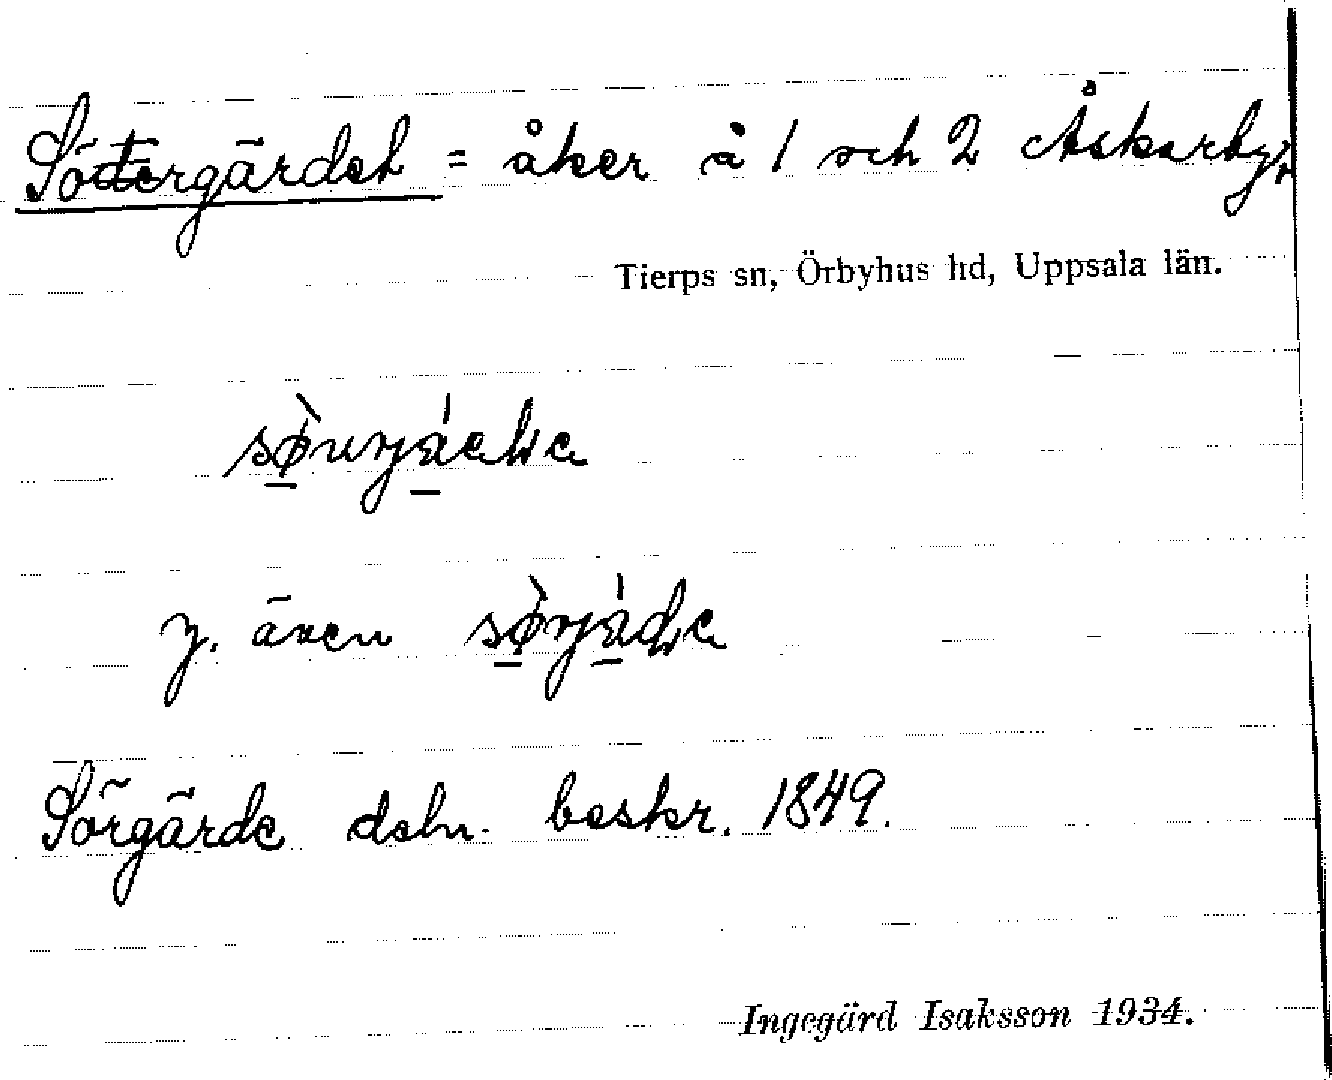 Södergärdet = åker å 1 och 2 Åskarby,
Tierps sn, Örbyhus hd, Uppsala län.
y. även
Sörgärde deln. beskr. 1849.
Ingegärd Isaksson 1934.